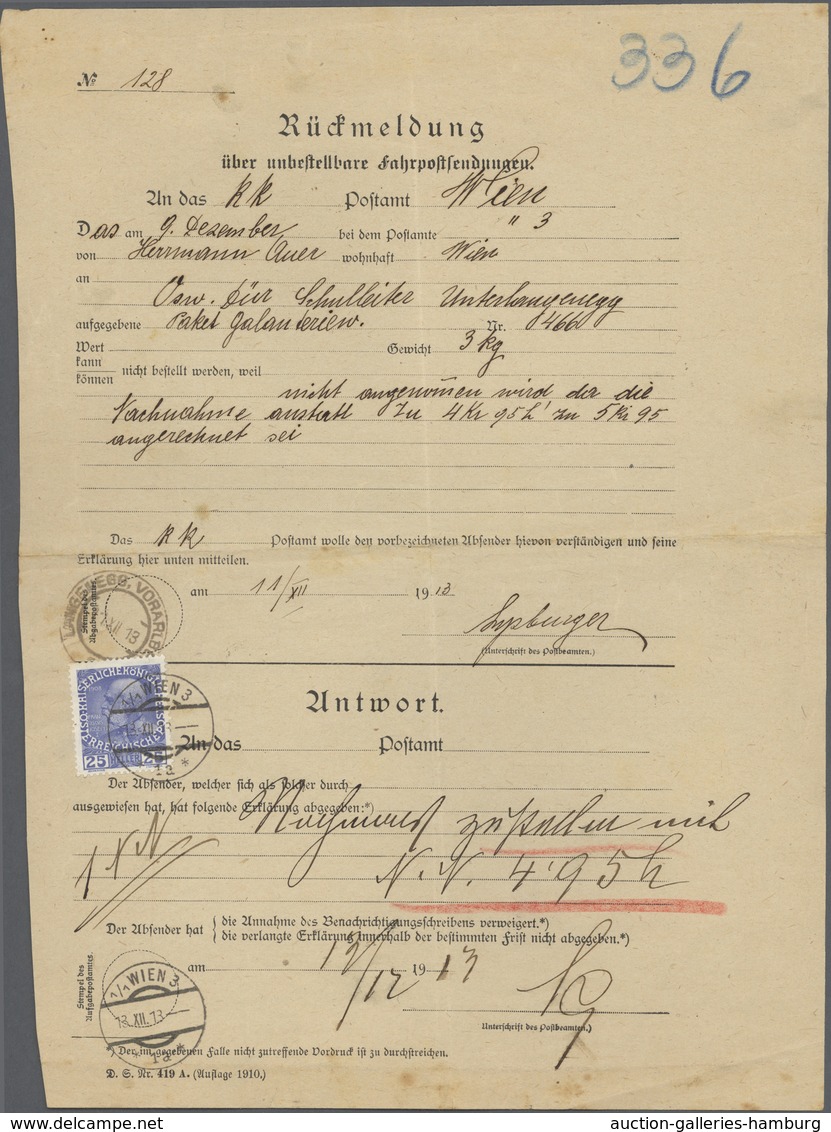 336
No 128
Rückmeldung
über unbestellbare Fahrpostsendungen.
An das KK Postamt Wien
Das am 9. Dezember bei dem Postamte " 3
von Herrmann Auer wohnhaft Wien
an
Osw. Für Schulleiter Unterlangenegg
aufgegebene Paket Galanteriew. Nr. 466
Wert Gewicht 3 kg
kann
können nicht bestellt werden, weil
nicht angenommen wird, da die
Nachnahme anstatt zu 4 Kr 95 h, zu 5 Kr 95
angerechnet sei
Das KK Postamt wolle den vorbezeichneten Absender hievon verständigen und seine
Erklärung hier unten mitteilen.
LANGENEGG, VORARLB
XII 13
Stempel des
Abgabepostamtes.
am 11/XII 1913
(Unterschrift des Postbeamten.)
Antwort.
KAISERLICHEKÖNIGLICHE
ÖSTERREICHISCHE POST
25 HELLER 25
1/1 WIEN 3
13.XII.13
1a *
An das Postamt
Der Absender, welcher sich als solcher durch
ausgewiesen hat, hat folgende Erklärung abgegeben:*)
Nochmals zustellen mit
N.N. 4'95h
Der Absender hat { die Annahme des Benachrichtigungsschreibens verweigert.*)
{ die verlangte Erklärung innerhalb der bestimmten Frist nicht abgegeben.*)
Stempel des
Aufgabepostamtes.
am 13/12 1913
1/1 WIEN 3
13.XII.13
* 1a *
Unterschrift des Postbeamten.)
*) Der im gegebenen Falle nicht zutreffende Vordruck ist zu durchstreichen.
D. S. Nr. 419 A. (Auflage 1910.)
auction-galleries-hamburg